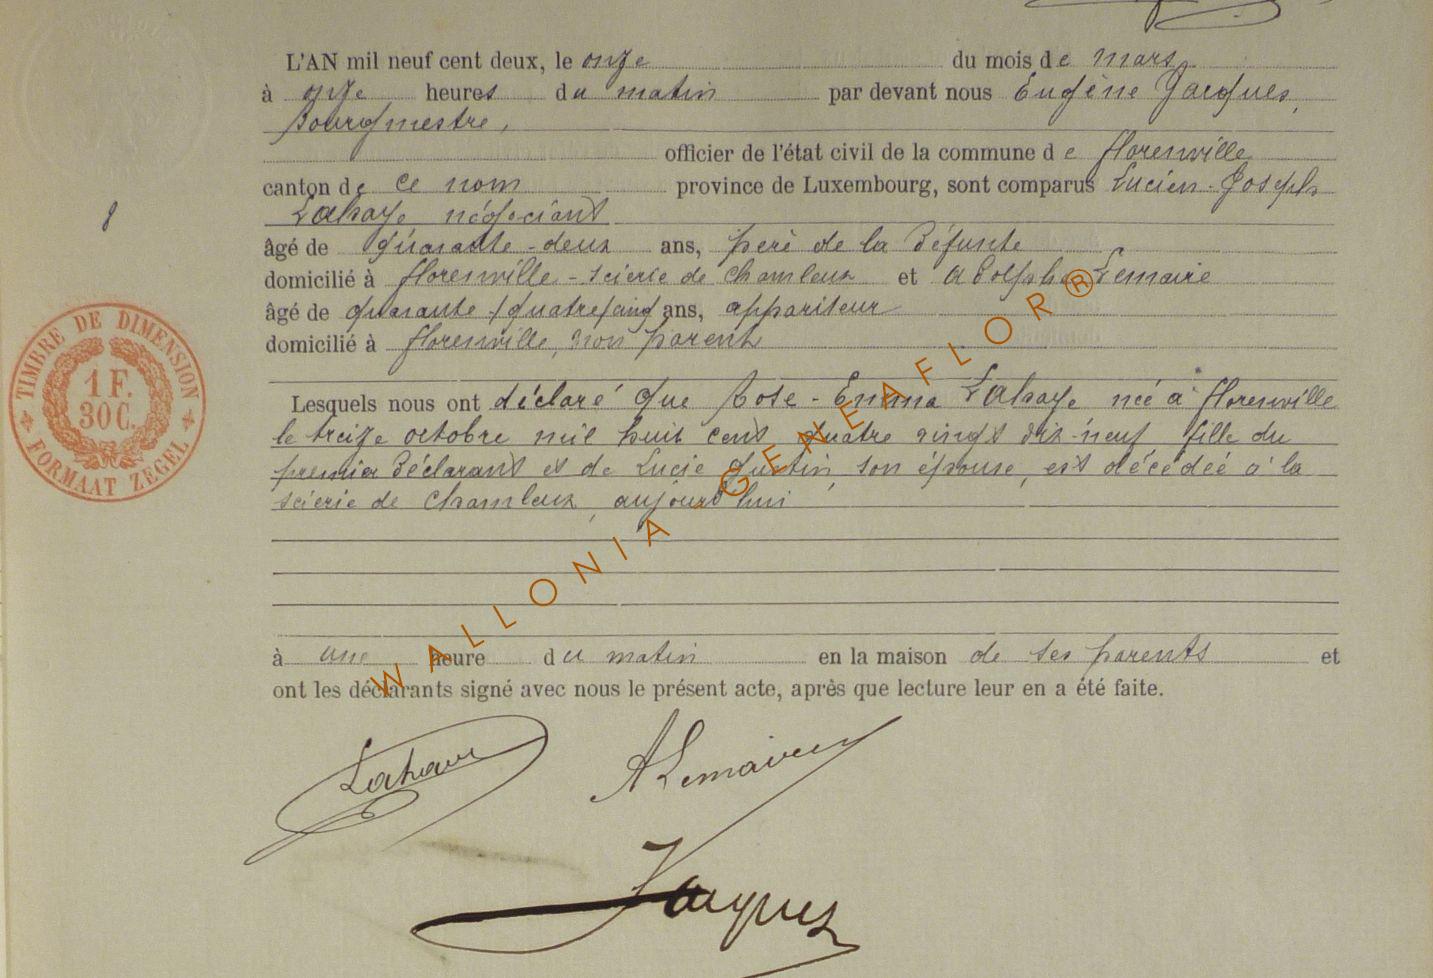 L'AN mil neuf cent deux, le onze du mois de mars
à onze heures du matin par devant nous Eugène Jacques,
Bourgmestre,
officier de l'état civil de la commune de florenville
canton de ce nom province de Luxembourg, sont comparus Lucien-Joseph
Lahaye négociant
8
âgé de quarante-deux ans, père de la Défunte
domicilié à florenville-scierie de chamleux et adolphe Lemaire
âgé de quarante / quatre/cinq ans, appariteur
domicilié à florenville, non parent
Lesquels nous ont déclaré que Rose-Emma Lahaye née à florenville
le treize octobre mil huit cent quatre vingt dix-neuf fille du
premier Déclarant et de Lucie Justin, son épouse, est décédée à la
scierie de chamleux, aujourd'hui
à une heure du matin en la maison de ses parents et
ont les déclarants signé avec nous le présent acte, après que lecture leur en a été faite.
Lahaye
A Lemaire
Jacques
TIMBRE DE DIMENSION
1 F.
30 C.
FORMAAT ZEGEL
WALLONIA - GENEAFLOR®